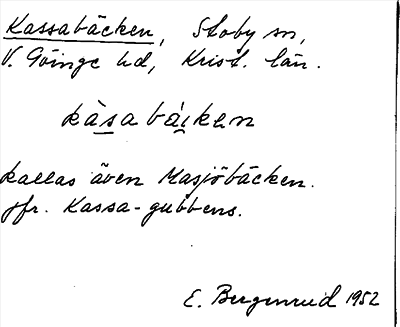 Kassabäcken, Stoby sn,
V. Göinge hd, Krist. län.
kàsabäcken
kallas även Masjöbäcken.
jfr. Kassa-gubbens.
E. Bergenrud 1952